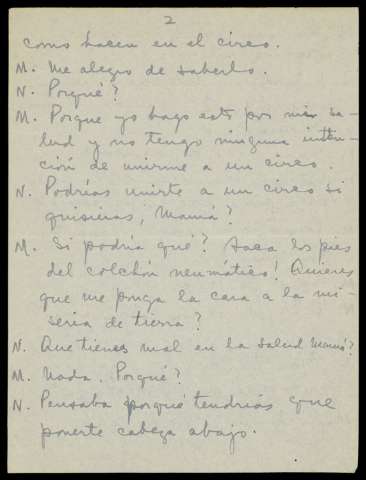 2
como hacen en el circo.
M. Me alegro de saberlo.
N. Porqué?
M. Porque yo hago esto por mi sa-
lud y no tengo ninguna inten-
ción de unirme a un circo.
N. Podrías unirte a un circo si
quisieras, Mamá?
M. Si podría qué? Saca los pies
del colchón neumático! Quieres
que me ponga la cara a la mi-
seria de tierra?
N. Que tienes mal en la salud Mamá?
M. Nada. Porqué?
N. Pensaba porqué tendrías que
ponerte cabeza abajo.